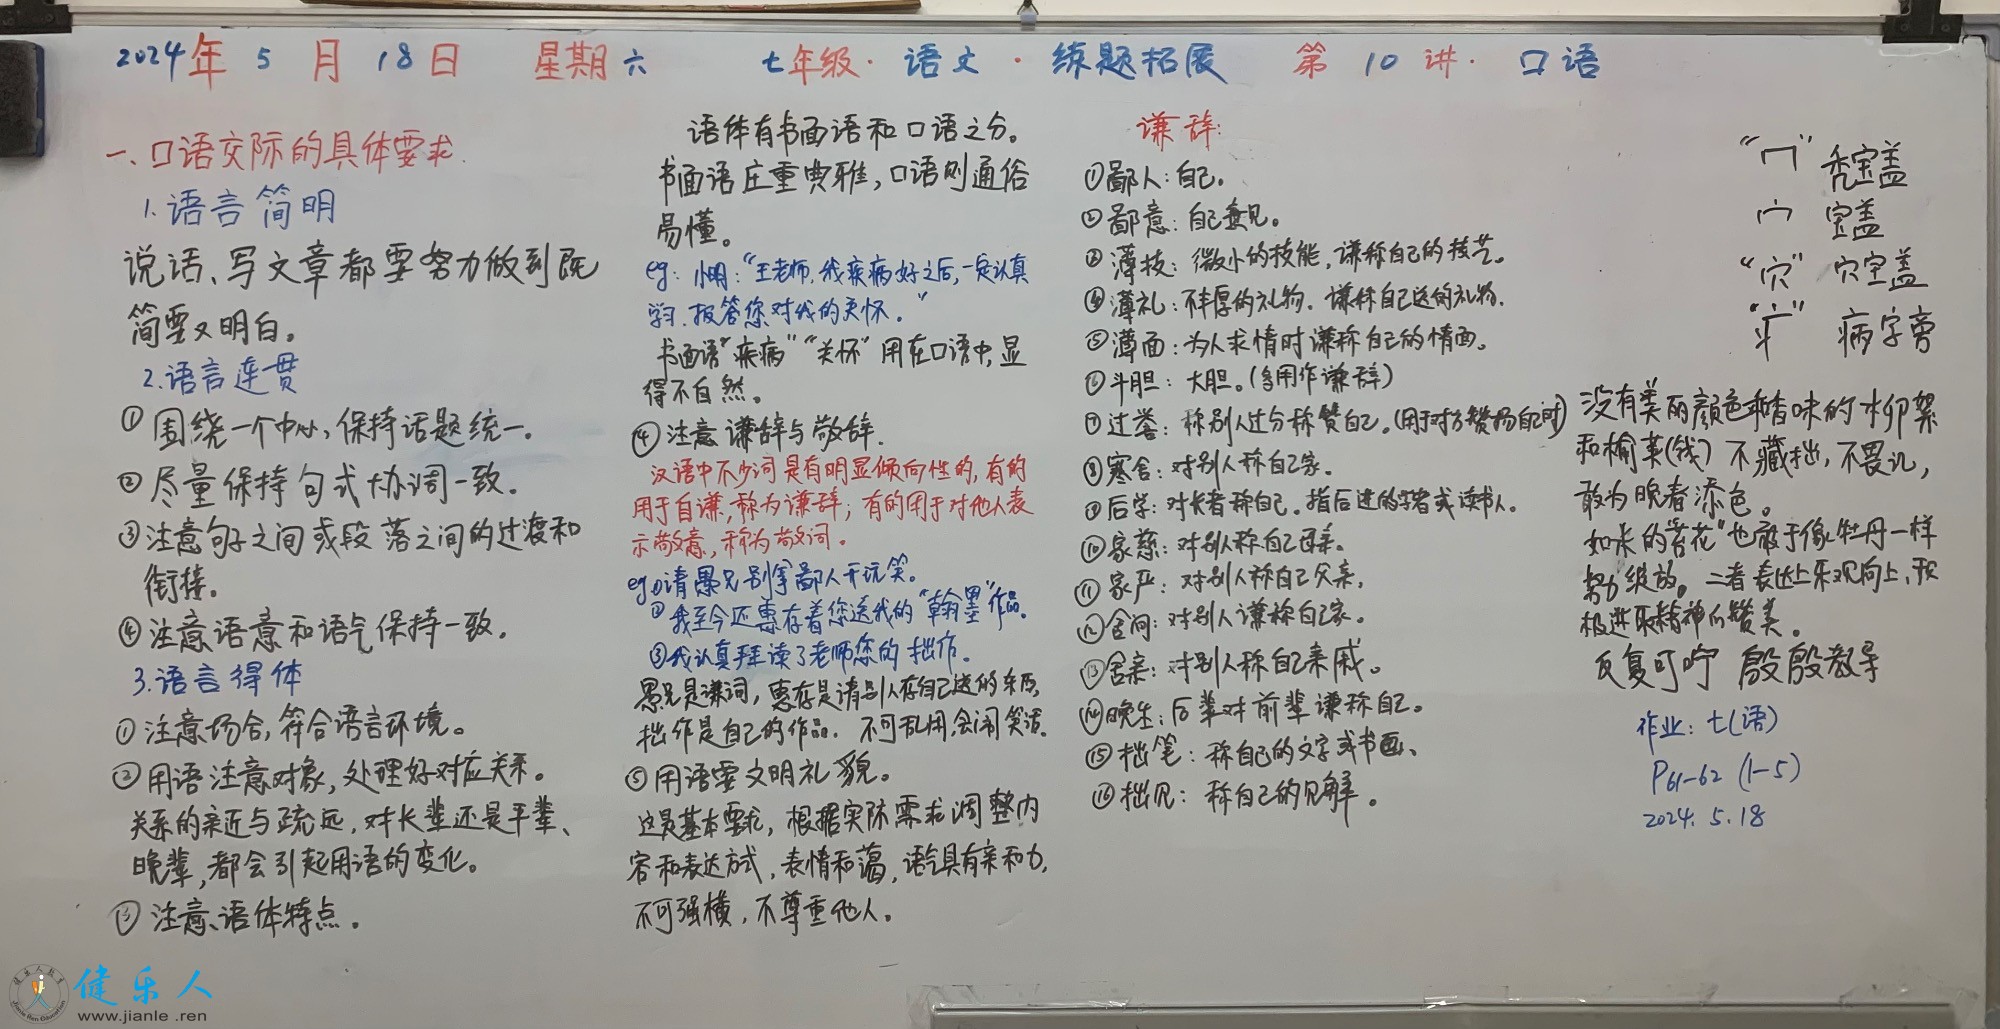 2024年5月18日 星期六 七年级·语文·练题拓展 第10讲·口语
一、口语交际的具体要求.
1.语言简明
说话、写文章都要努力做到既
简要又明白。
2.语言连贯
①围绕一个中心,保持话题统一。
②尽量保持句式协调一致。
③注意句子之间或段落之间的过渡和
衔接。
④注意语意和语气保持一致。
3.语言得体
①注意场合,符合语言环境。
②用语注意对象,处理好对应关系。
关系的亲近与疏远,对长辈还是平辈、
晚辈,都会引起用语的变化。
③注意语体特点。
语体有书面语和口语之分。
书面语庄重典雅,口语则通俗
易懂。
eg:小明:“王老师,我疾病好之后,一定认真
学习.报答您对我的关怀。”
书面语“疾病”“关怀”用在口语中,显
得不自然。
④注意谦辞与敬辞.
汉语中不少词是有明显倾向性的,有的
用于自谦,称为谦辞;有的用于对他人表
示敬意,称为敬词。
eg①请愚兄别拿鄙人开玩笑。
②我至今还惠存着您送我的“翰墨”作品.
③我认真拜读了老师您的拙作。
愚兄是谦词,惠存是请别人存自己送的东西,
拙作是自己的作品.不可乱用,会闹笑话.
⑤用语要文明礼貌。
这是基本要求,根据实际需求调整内
容和表达方式,表情和蔼,语气具有亲和力,
不可强横,不尊重他人。
谦辞:
①鄙人:自己。
②鄙意:自己意见。
③薄技:微小的技能,谦称自己的技艺。
④薄礼:不丰厚的礼物.谦称自己送的礼物.
⑤薄面:为人求情时谦称自己的情面。
⑥斗胆:大胆。(多用作谦辞)
⑦过誉:称别人过分称赞自己。(用于对方赞扬自己时)
⑧寒舍:对别人称自己家。
⑨后学:对长者称自己.指后进的学者或读书人。
⑩家慈:对别人称自己母亲。
⑪家严:对别人称自己父亲.
⑫舍间:对别人谦称自己家。
⑬舍亲:对别人称自己亲戚。
⑭晚生:后辈对前辈谦称自己。
⑮拙笔:称自己的文字或书画、
⑯拙见:称自己的见解。
“冖”秃宝盖
宀 宝盖
“穴”穴宝盖
“疒”病字旁
没有美丽颜色和香味的柳絮
和榆荚(钱)不藏拙,不畏讥,
敢为晚春添色。
如米的“苔花”也敢于像牡丹一样
努力绽放。二者表达上乐观向上,积
极进取精神的赞美。
反复叮咛 殷殷教导
作业:七(语)
P61-62 (1-5)
2024.5.18
健乐人
www.jianle.ren